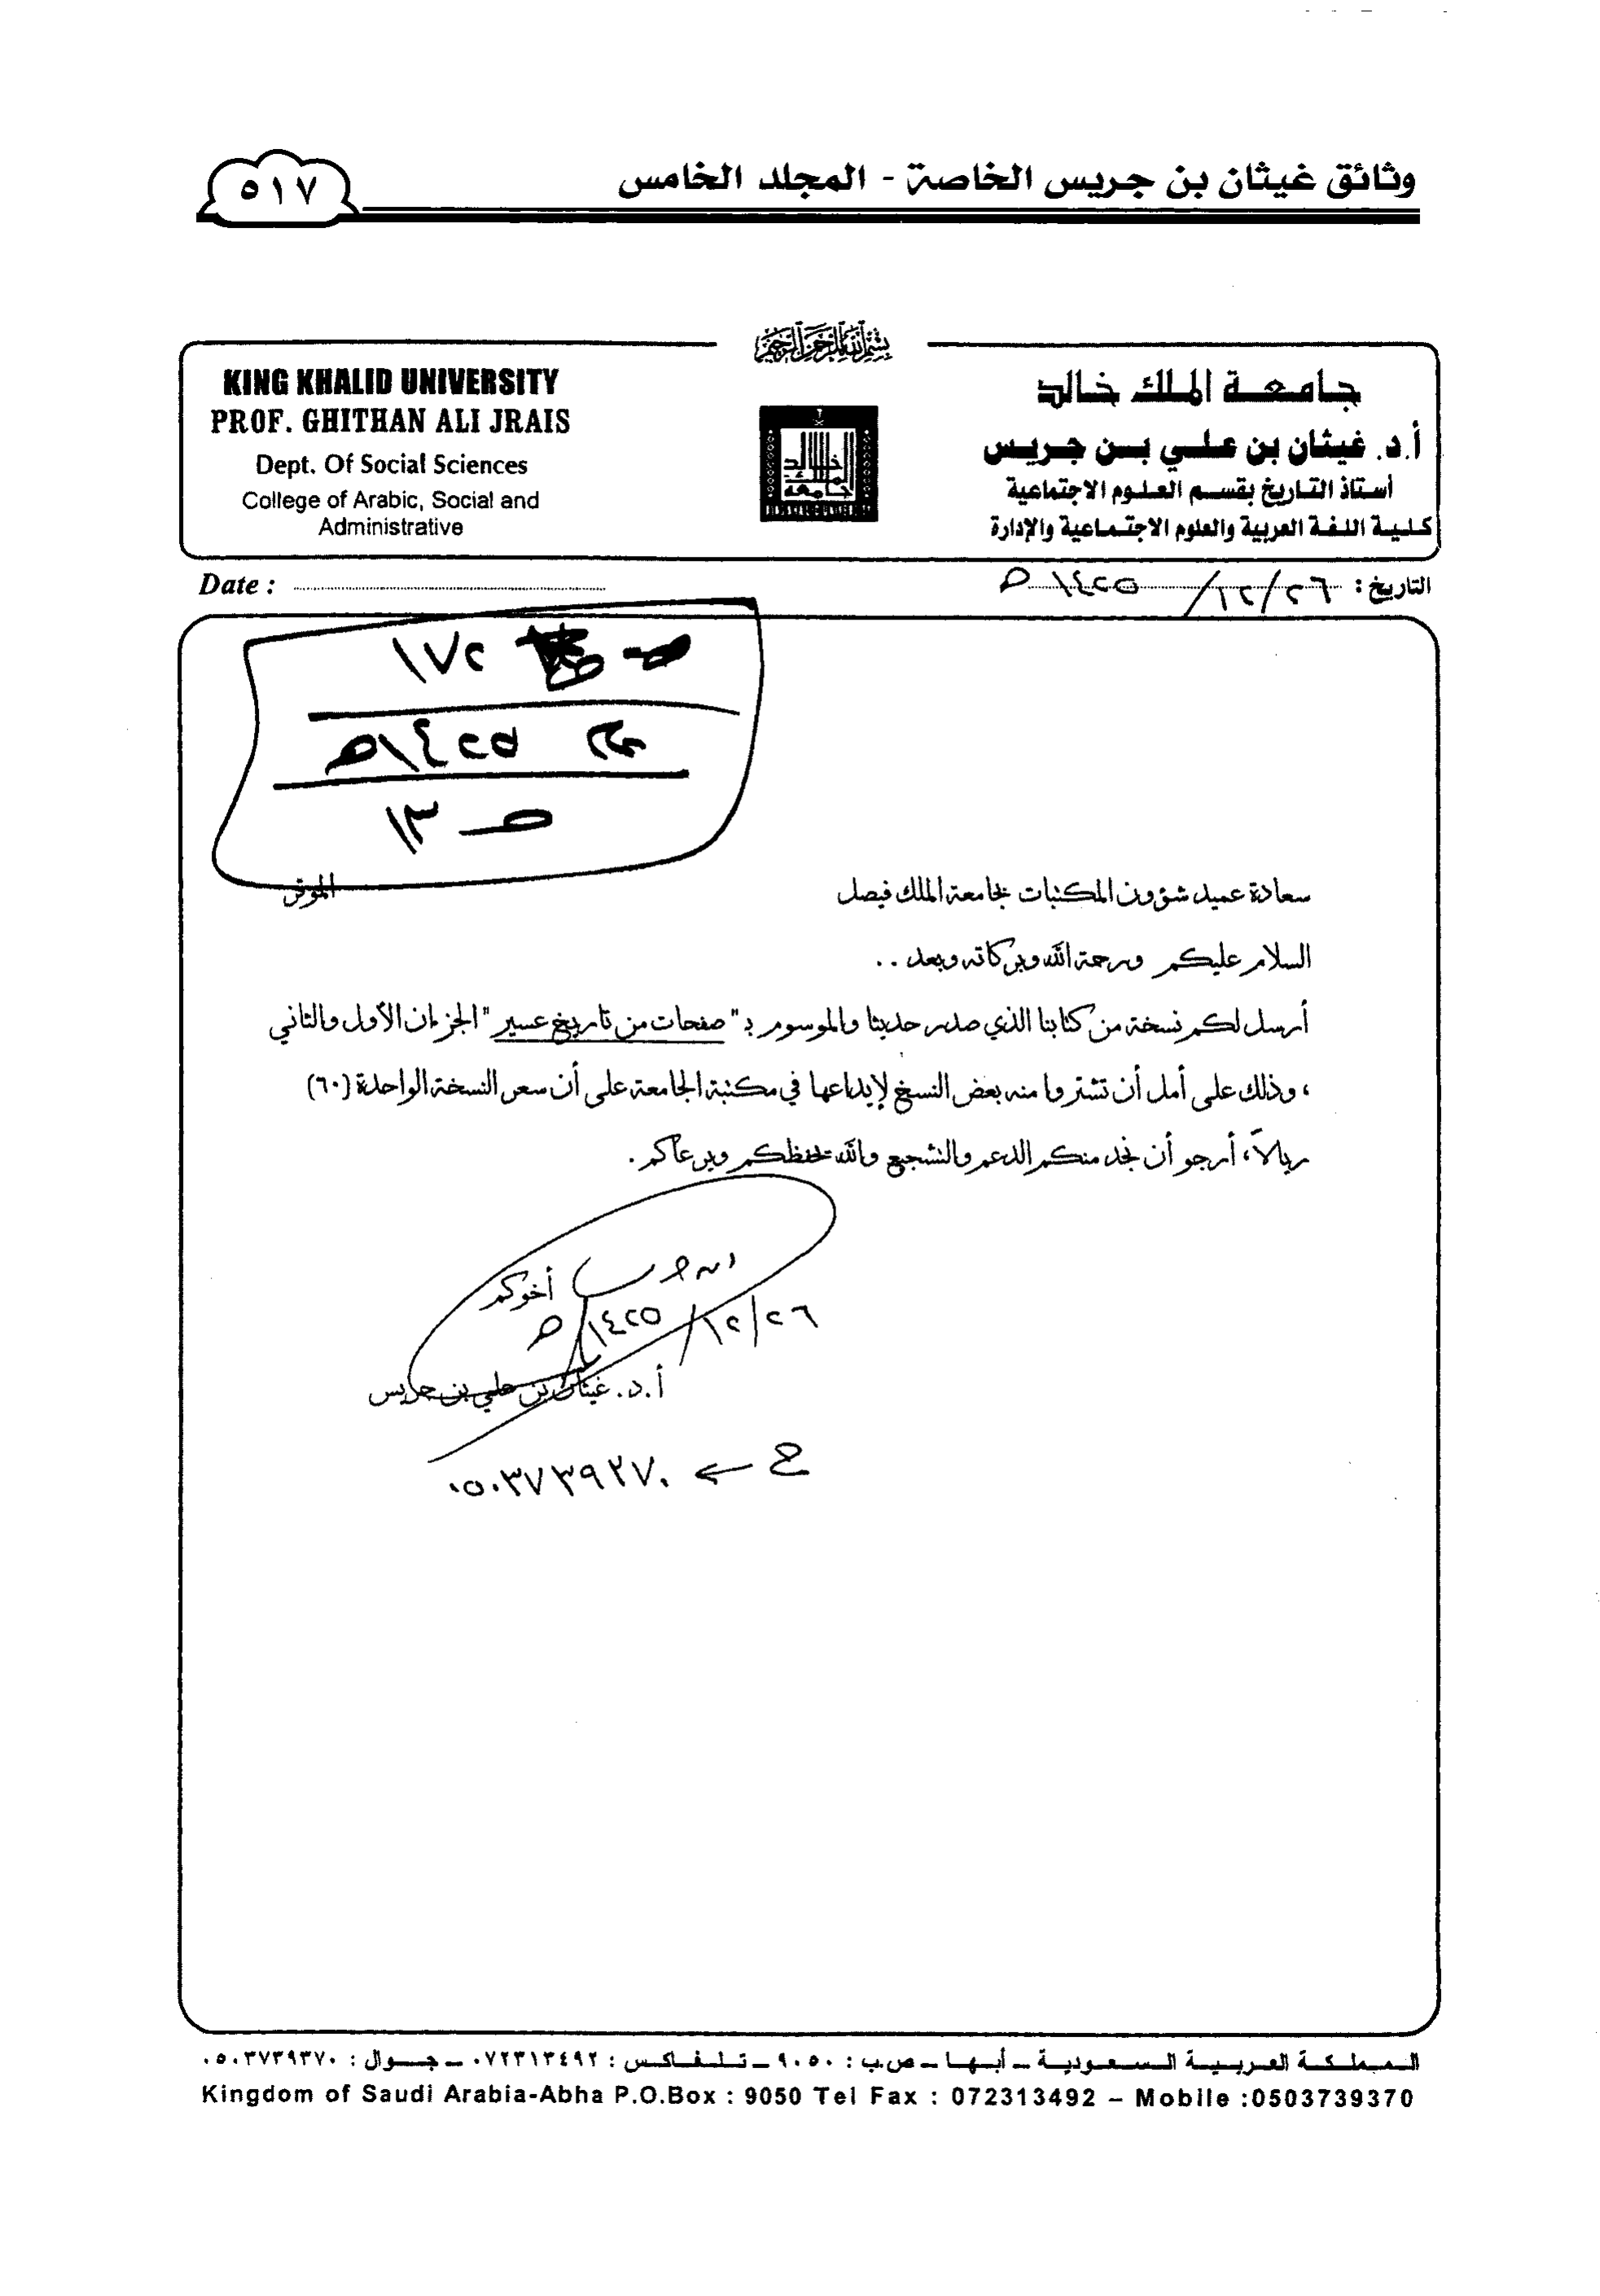 وثائق غيثان بن جريس الخاصة - المجلد الخامس
٥١٧
بسم الله الرحمن الرحيم
جامعة الملك خالد
أ.د. غيثان بن علي بن جريس
أستاذ التاريخ بقسم العلوم الاجتماعية
كلية اللغة العربية والعلوم الاجتماعية والإدارة
KING KHALID UNIVERSITY
PROF. GHITHAN ALI JRAIS
Dept. Of Social Sciences
College of Arabic, Social and
Administrative
التاريخ : ٢٦/١٢/١٤٢٥ هـ
Date :
١٧٢
١٤٢٥هـ
ص ١٣
سعادة عميد شؤون المكتبات بجامعة الملك فيصل الموقر
السلام عليكم ورحمة الله وبركاته وبعد ..
أرسل لكم نسخة من كتابنا الذي صدر حديثا والموسوم بـ " صفحات من تاريخ عسير " الجزءان الأول والثاني
، وذلك على أمل أن تشتروا منه بعض النسخ لإيداعها في مكتبة الجامعة على أن سعر النسخة الواحدة (٦٠)
ريالاً، أرجو أن نجد منكم الدعم والتشجيع والله يحفظكم ويرعاكم .
أخوكم
٢٦/١٢/١٤٢٥ هـ
أ.د. غيثان بن علي بن جريس
ج ← ٠٥٠٣٧٣٩٣٧٠
المملكة العربية السعودية – أبها – ص.ب : ٩٠٥٠ – تلفاكس : ٠٧٢٣١٣٤٩٢ – جوال : ٠٥٠٣٧٣٩٣٧٠
Kingdom of Saudi Arabia-Abha P.O.Box : 9050 Tel Fax : 072313492 – Mobile :0503739370